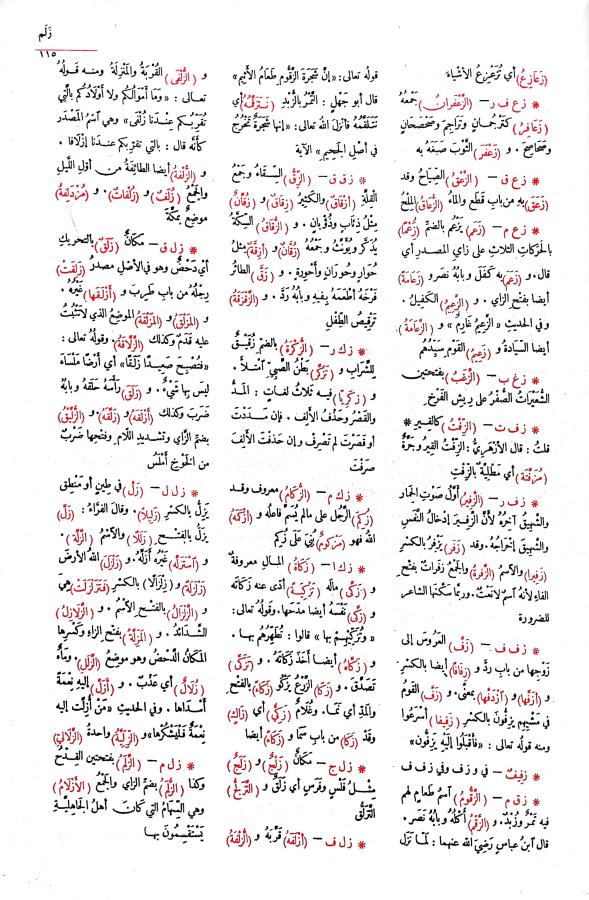 زَلَم
١١٥
(زَعَازِعُ) أي تُزَعْزِعُ الأشياءَ
* ز ع ف ر – (الزَّعْفَرانُ) جَمْعُهُ
(زَعَافِرُ) كتَرْجُمانٍ وتَراجِمَ وصَحْصَحَانٍ
وصَحَاصِحَ . و (زَعْفَرَ) الثَّوْبَ صَبَغَهُ به
* ز ع ق – (الزَّعْقُ) الصِّياحُ وقد
(زَعَقَ) به من باب قطع والماءُ (الزُّعَاقُ) المِلْحُ
* ز ع م – (زَعَمَ) يَزْعُمُ بالضم (زَعْمًا)
بالحَرَكاتِ الثلاثِ على زاي المصدرِ أي
قال. و (زَعَمَ) به كَفَلَ وبابُهُ نَصَرَ و (زَعَامَةً)
أيضا بفتح الزاي . و (الزَّعِيمُ) الكفيلُ .
وفي الحديثِ « الزَّعيمُ غَارِمٌ » و (الزَّعَامَةُ)
أيضا السِّيادةُ و (زَعِيمُ) القَوْمِ سَيِّدُهُم
* ز غ ب – (الزَّغَبُ) بفتحتين
الشُّعَيْراتُ الصُّفْرُ على رِيشِ الفَرْخِ
* ز ف ت – (الزِّفْتُ) كالقِيرِ *
قلتُ : قال الأزهَرِيُّ : الزِّفْتُ القِيرُ وجَرَّةٌ
(مُزَفَّتَةٌ) أي مَطْلِيَّةٌ بالزِّفْتِ
* ز ف ر – (الزَّفِيرُ) أوَّلُ صَوْتِ الحِمار
والشَّهِيقُ آخِرُهُ لأنَّ الزَّفيرَ إدخالُ النَّفَسِ
والشَّهيقَ إخْراجُهُ. وقد (زَفَرَ) يَزْفِرُ بالكسر
(زَفِيرا) والاسمُ (الزَّفْرَةُ) والجمعُ زَفَرات بفتح
الفاء لأنه اسمٌ لا نَعْتٌ. وربَّما سَكَّنَها الشاعر
للضرورة
* ز ف ف – (زَفَّ) العَرُوسَ إلى
زَوْجِها من بابِ رَدَّ و (زِفَافًا) أيضا بالكسرِ
و (أَزَفَّها) و (ازْدَفَّها) بمعنًى. و (زَفَّ) القَوْمُ
في مَشْيِهِم يَزِفُّونَ بالكسرِ (زَفِيفا) أَسْرَعُوا
ومنه قوله تعالى : «فأَقْبَلُوا إلَيْهِ يَزِفُّونَ»
* زَفِيفٌ – في وز ف وفي ز ف ف
* ز ق م – (الزَّقُّومُ) اسمُ طعامٍ لهم
فيه تَمْرٌ وزُبْدٌ. و (الزَّقْمُ) أَكْلُهُ وبابُهُ نَصَرَ .
قال ابنُ عباسٍ رَضِيَ الله عنهما : لَمَّا نَزَلَ
قولُه تعالى: «إنَّ شَجَرَةَ الزَّقُّومِ طَعَامُ الأَثِيمِ»
قال أبو جَهْلٍ : التَّمْرُ بالزُّبْدِ (نَتَزَقَّمُهُ) أي
نَتَلَقَّمُهُ فأنزلَ اللهُ تعالى: «إنها شَجَرَةٌ تَخْرُجُ
في أَصْلِ الجَحِيمِ» الآيةَ
* ز ق ق – (الزِّقُّ) السِّقاءُ وجَمْعُ
القِلَّةِ (أَزْقاقٌ) والكثيرُ (زِقاقٌ) و (زُقَّانٌ)
مِثلُ ذِئَابٍ وذُؤْبانٍ . و (الزُّقَاقُ) السِّكَّةُ
يُذَكَّرُ ويُؤَنَّثُ وجَمْعُهُ (زُقَّانٌ) و (أَزِقَّةٌ) مِثلُ
حُوَارٍ وحُورانٍ وأَحْوِرةٍ . و (زَقَّ) الطائرُ
فَرْخَهُ أَطْعَمَهُ بِفِيهِ وبابُهُ رَدَّ . و (الزَّقْزَقَةُ)
تَرْقِيصُ الطِّفْلِ
* ز ك ر – (الزُّكْرَةُ) بالضم زُقَيْقٌ
للشَّرَابِ و (تَزَكَّرَ) بَطْنُ الصَّبيِّ امْتلأَ .
و (زَكَرِيَّا) فيه ثلاثُ لُغَاتٍ : المَدُّ
والقَصْرُ وحَذْفُ الألِفِ. فإن مَدَدْتَ
أو قَصَرْتَ لم تَصْرِفْ وإن حَذفتَ الألِفَ
صَرَفْتَ
* ز ك م – (الزُّكَامُ) معروف وقد
(زُكِمَ) الرَّجُلُ على مالم يُسَمَّ فاعلُه و (أزْكَمَهُ)
اللهُ فهو (مَزْكُومٌ) بُنِيَ على زُكِمَ
* ز ك ا – (زَكَاةُ) المال معروفةٌ
و (زَكَّى) مالَهُ (تَزْكِيَةً) أدَّى عنه زَكَاتَه
و (زَكَّى) نَفْسَهُ أيضا مَدَحَها. وقولُه تعالى :
«وتُزَكِّيهِمْ بها » قالوا : تُطَهِّرُهُم بها .
و (زَكَّاهُ) أيضا أخَذَ زَكَاتَهُ . و (تَزَكَّى)
تَصَدَّقَ . و (زَكَا) الزَّرْعُ يَزْكُو (زَكَاءً) بالفتح
والمَدِّ أي نَمَا. وغُلَامٌ (زَكِيٌّ) أي (زَاكٍ)
وقَدْ (زَكَا) من بابِ سَمَا و (زَكَاءً) أيضا
* ز ل ج – مَكانٌ (زَلْجٌ) و (زَلَجٌ)
مِثْلُ فَلْسٍ وفَرَسٍ أي زَلَقٌ و (التَّزَلُّجُ)
التَّزَلُّقُ
* ز ل ف – (أَزْلَفَهُ) قَرَّبَهُ و (الزُّلْفَةُ)
و (الزُّلْفَى) القُرْبَةُ والمَنْزِلَةُ ومنه قَولُهُ
تعالى : «وما أَمْوَالُكُم ولا أَوْلَادُكُم بالَّتِي
تُقَرِّبُكُم عِنْدَنَا زُلْفَى» وهي اسْمُ المَصْدَر
كأنّه قال : بالتي تقرّبكم عندنا إزْلافا .
و (الزُّلْفَةُ) أيضا الطائفةُ من أوّلِ اللَّيلِ
والجَمْعُ (زُلَفٌ) و (زُلْفَاتٌ). و (مُزْدَلِفَةُ)
موضعٌ بمكّةَ
* ز ل ق – مَكانٌ (زَلَقٌ) بالتحريكِ
أي دَحْضٌ وهو في الأصل مصدرُ (زَلِقَتْ)
رِجْلُهُ من باب طَرِبَ و (أَزْلَقَها) غَيْرُهُ .
و (المَزْلَقُ) و (المَزْلَقَةُ) الموضعُ الذي لا تَثْبُتُ
عليه قَدَمٌ وكذلك (الزَّلَّاقَةُ) وقولُه تعالى :
«فتُصْبِحَ صَعِيدًا زَلَقًا» أي أرضًا مَلْسَاءَ
ليس بها شَيْءٌ . و (زَلَقَ) رأسَهُ حَلَقَهُ وبابُهُ
ضَرَبَ وكذلك (أَزْلَقَهُ) و (زَلَّقَهُ). و (الزُّلَّيْقُ)
بضم الزاي وتشديد اللام وفتحها ضَرْبٌ
من الخَوْخِ أَمْلَسُ
* ز ل ل – (زَلَّ) في طِينٍ أو مَنْطِقٍ
يَزِلُّ بالكسرِ (زَلِيلا). وقالَ الفرّاءُ : (زَلَّ)
يَزَلُّ بالفتح (زَلَلًا) والاسمُ (الزَّلَّةُ) .
و (اسْتَزَلَّهُ) غَيْرُه أَزَلَّهُ. و (زَلْزَلَ) اللهُ الأرضَ
(زَلْزَلَةً) و (زِلْزَالا) بالكسر (فتَزَلْزَلَتْ) هي.
و (الزَّلْزَالُ) بالفتح الاسْمُ . و (الزَّلَازِلُ)
الشَّدائدُ . و (المَزِلَّةُ) بفتح الزاء وكَسْرِها
المَكَانُ الدَّحْضُ وهو موضعُ (الزَّلَلِ). وماءٌ
(زُلَالٌ) أي عَذْبٌ . و (أَزَلَّ) إليه نِعْمَةً
أسْدَاها . وفي الحديثِ «مَنْ أُزِلَّتْ إليه
نِعْمَةٌ فَلْيَشْكُرْها» و (الزِّلِّيَّةُ) واحدةُ (الزَّلَالِيِّ)
* ز ل م – (الزَّلَمُ) بفتحتين القِدْحُ
وكذا (الزُّلَمُ) بضمِّ الزاي والجَمْعُ (الأَزْلَامُ)
وهي السِّهامُ التي كانَ أهلُ الجَاهِليَّةِ
يَسْتَقْسِمُونَ بها